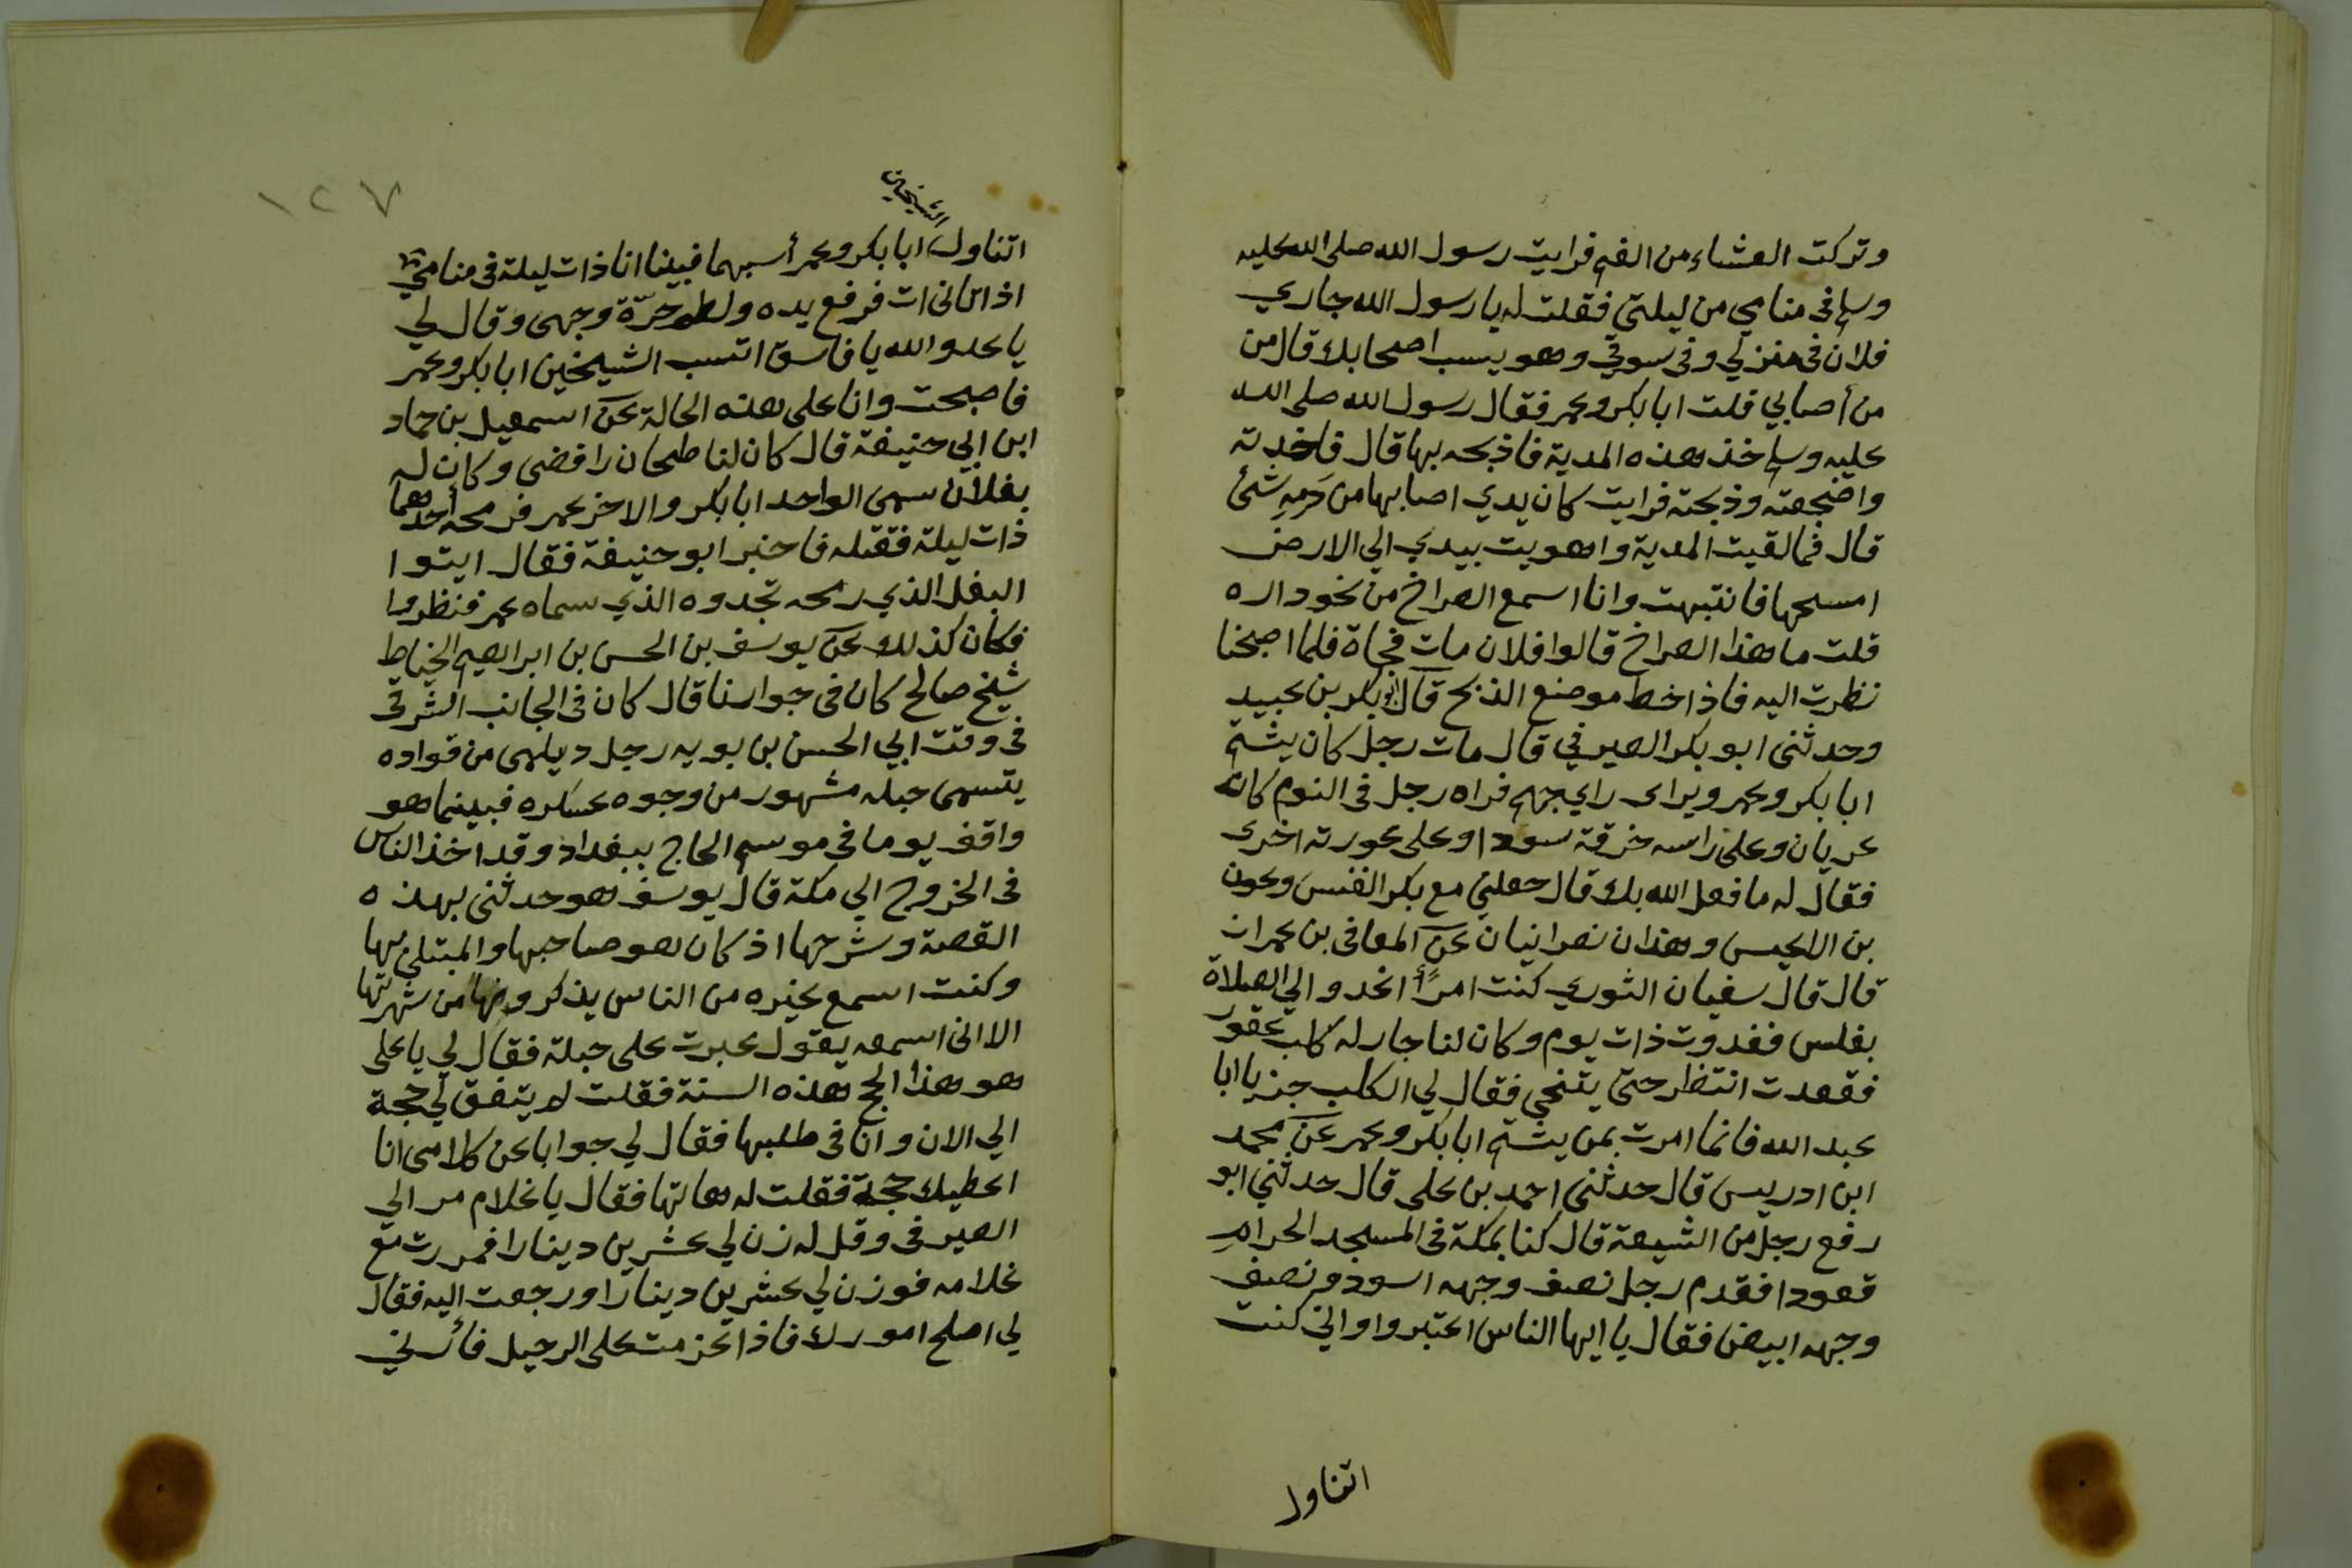 وتركت العشاء من الغم فرايت رسول الله صلى الله عليه
وسلم في منامي من ليلتي فقلت له يا رسول الله جاري
فلان في منزلي وفي سوقي وهو يسب اصحابك قال من
من أصابي قلت ابا بكر وعمر فقال رسول الله صلى الله
عليه وسلم خذ هذه المدية فاذبحه بها قال فاخذته
واضجعته وذبحته فرايت كان يدي اصابها من دمه شئ
قال فالقيت المدية واهويت بيدي الي الارض
امسحها فانتبهت وانا اسمع الصراخ من نحو داره
قلت ما هذا الصراخ قالوا فلان مات فجاة فلما اصبحنا
نظرت اليه فاذا خط موضع الذبح قال ابو بكر بن عبيد
وحدثني ابو بكر الصيرفي قال مات رجل كان يشتم
ابا بكر وعمر ويراى راي جهم فراه رجل في النوم كانه
عريان وعلى راسه خرقة سودا وعلى عورته اخرى
فقال له ما فعل الله بك قال جعلني مع بكر القس وعون
بن الاعيس وهذان نصرانيان عن المعافى بن عمران
قال قال سفيان الثوري كنت امرًأ اغدو الي الصلاة
بغلس فغدوت ذات يوم وكان لنا جار له كلب عقور
فقعدت انتظر حتى يتنحي فقال لي الكلب جز يا ابا
عبد الله فانما امرت بمن يشتم ابا بكر وعمر عن محمد
ابن ادريس قال حدثني احمد بن على قال حدثني ابو
رفع رجل من الشيعة قال كنا بمكة في المسجد الحرام
قعودا فقدم رجل نصف وجهه اسود ونصف
وجهه ابيض فقال يا ايها الناس اعتبروا واني كنت
اتناول
١٢٧
الشيخين
اتناول ابا بكر وعمر أسبهما فبينا انا ذات ليلة في منامي
اذ اتاني ات فرفع يده ولطم حرّة وجهى وقال لي
يا عدو الله يا فاسق اتسب الشيخين ابا بكر وعمر
فاصبحت وانا على هذه الحالة عن اسمعيل بن حماد
ابن ابي حنيفة قال كان لنا طحان رافضي وكان له
بغلان سمى الواحد ابا بكر والاخر عمر فرمحه أحدهما
ذات ليلة فقتله فاخبر ابو حنيفة فقال ايتوا
البغل الذي رمحه تجدوه الذي سماه عمر فنظروا
فكان كذلك عن يوسف بن الحسن بن ابراهيم الخياط
شيخ صالح كان في جوارنا قال كان في الجانب الشرقى
في وقت ابي الحسن بن بويه رجل ديلمى من قواده
يتسمى جبله مشهور من وجوه عسكره فبينما هو
واقف يوما في موسم الحاج ببغداد وقد اخذ الناس
في الخروج الي مكة قال يوسف هو حدثني بهذه
القصة وشرحها اذ كان هو صاحبها والمبتلى بها
وكنت اسمع غيره من الناس يذكرونها من شهرتها
الا اني اسمعه يقول عبرت على جبلة فقال لي يا على
هو هذا الحج هذه السنة فقلت لم يتفق لي حجة
الي الان وانا في طلبها فقال لي جوابا عن كلامى انا
اعطيك حجة فقلت له هاتها فقال يا غلام مر الي
الصيرفي وقل له زن لي عشرين دينارا فمررت مع
غلامه فوزن لي عشرين دينارا ورجعت اليه فقال
لي اصلح امورك فاذا عزمت على الرحيل فأرني